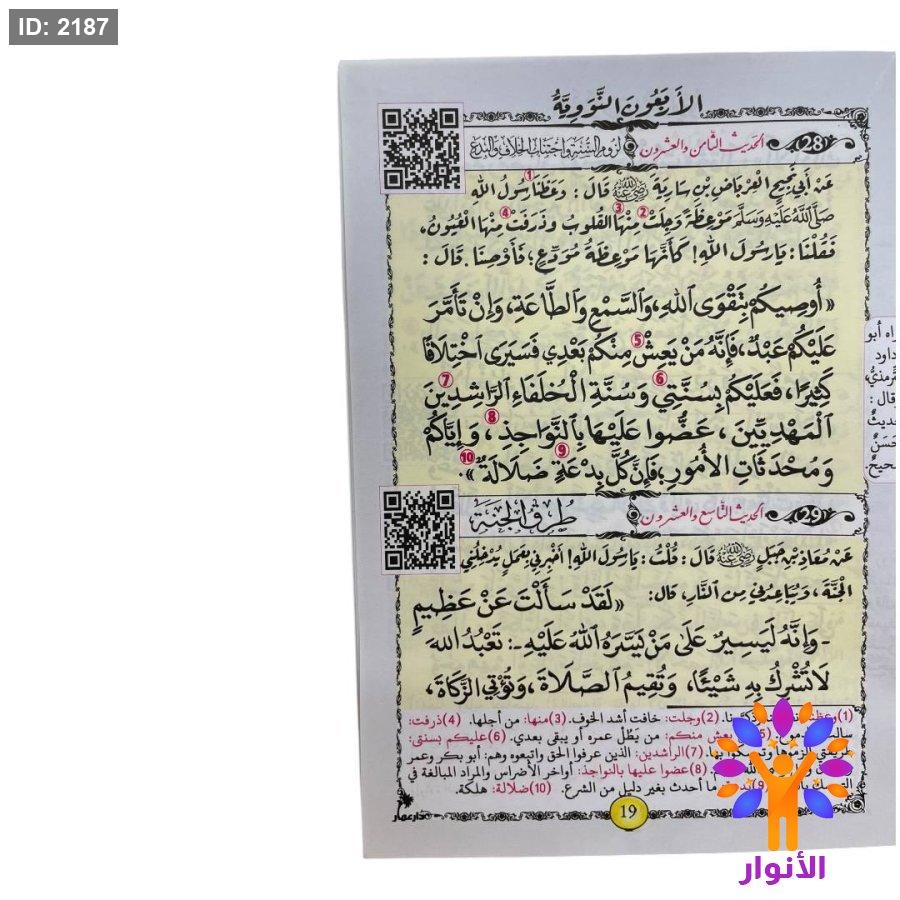 ID: 2187
الأَرْبَعُونَ النَّوَوِيَّةُ
28 الحَدِيثُ الثَّامِنُ وَالعِشْرُونَ لُزُومُ السُّنَّةِ وَاجْتِنَابُ الخِلَافِ وَالبِدَعِ
عَنْ أَبِي نَجِيحٍ العِرْبَاضِ بْنِ سَارِيَةَ رَضِيَ اللَّهُ عَنْهُ قَالَ: وَعَظَنَا (1) رَسُولُ اللهِ
صَلَّى اللَّهُ عَلَيْهِ وَسَلَّمَ مَوْعِظَةً وَجِلَتْ (2) مِنْهَا (3) القُلُوبُ وَذَرَفَتْ (4) مِنْهَا العُيُونُ،
فَقُلْنَا: يَا رَسُولَ اللهِ! كَأَنَّهَا مَوْعِظَةُ مُوَدِّعٍ؛ فَأَوْصِنَا. قَالَ:
«أُوصِيكُمْ بِتَقْوَى اللهِ، وَالسَّمْعِ وَالطَّاعَةِ، وَإِنْ تَأَمَّرَ
عَلَيْكُمْ عَبْدٌ، فَإِنَّهُ مَنْ يَعِشْ (5) مِنْكُمْ بَعْدِي فَسَيَرَى اخْتِلَافًا
كَثِيرًا، فَعَلَيْكُمْ بِسُنَّتِي (6) وَسُنَّةِ الْخُلَفَاءِ الرَّاشِدِينَ (7)
الْمَهْدِيِّينَ، عَضُّوا عَلَيْهَا بِالنَّوَاجِذِ (8)، وَإِيَّاكُمْ
وَمُحْدَثَاتِ الأُمُورِ؛ فَإِنَّ كُلَّ بِدْعَةٍ (9) ضَلَالَةٌ (10)».
أبو
داود
قال:
29 الحَدِيثُ التَّاسِعُ وَالعِشْرُونَ طُرُقُ الجَنَّةِ
عَنْ مُعَاذِ بْنِ جَبَلٍ رَضِيَ اللَّهُ عَنْهُ قَالَ: قُلْتُ: يَا رَسُولَ اللهِ! أَخْبِرْنِي بِعَمَلٍ يُدْخِلُنِي
الجَنَّةَ، وَيُبَاعِدُنِي مِنَ النَّارِ، قَالَ: «لَقَدْ سَأَلْتَ عَنْ عَظِيمٍ
- وَإِنَّهُ لَيَسِيرٌ عَلَى مَنْ يَسَّرَهُ اللهُ عَلَيْهِ -: تَعْبُدُ اللهَ
لَا تُشْرِكُ بِهِ شَيْئًا، وَتُقِيمُ الصَّلَاةَ، وَتُؤْتِي الزَّكَاةَ،
(2) وجلت: خافت أشد الخوف. (3) منها: من أجلها. (4) ذرفت:
منكم: من يطل عمره أو يبقى بعدي. (6) عليكم بسنتي:
بها. (7) الراشدين: الذين عرفوا الحق واتبعوه وهم: أبو بكر وعمر
(8) عضوا عليها بالنواجذ: أواخر الأضراس والمراد المبالغة في
(9) ما أحدث بغير دليل من الشرع. (10) ضلالة: هلكة.
19
دار عمار
الأنوار